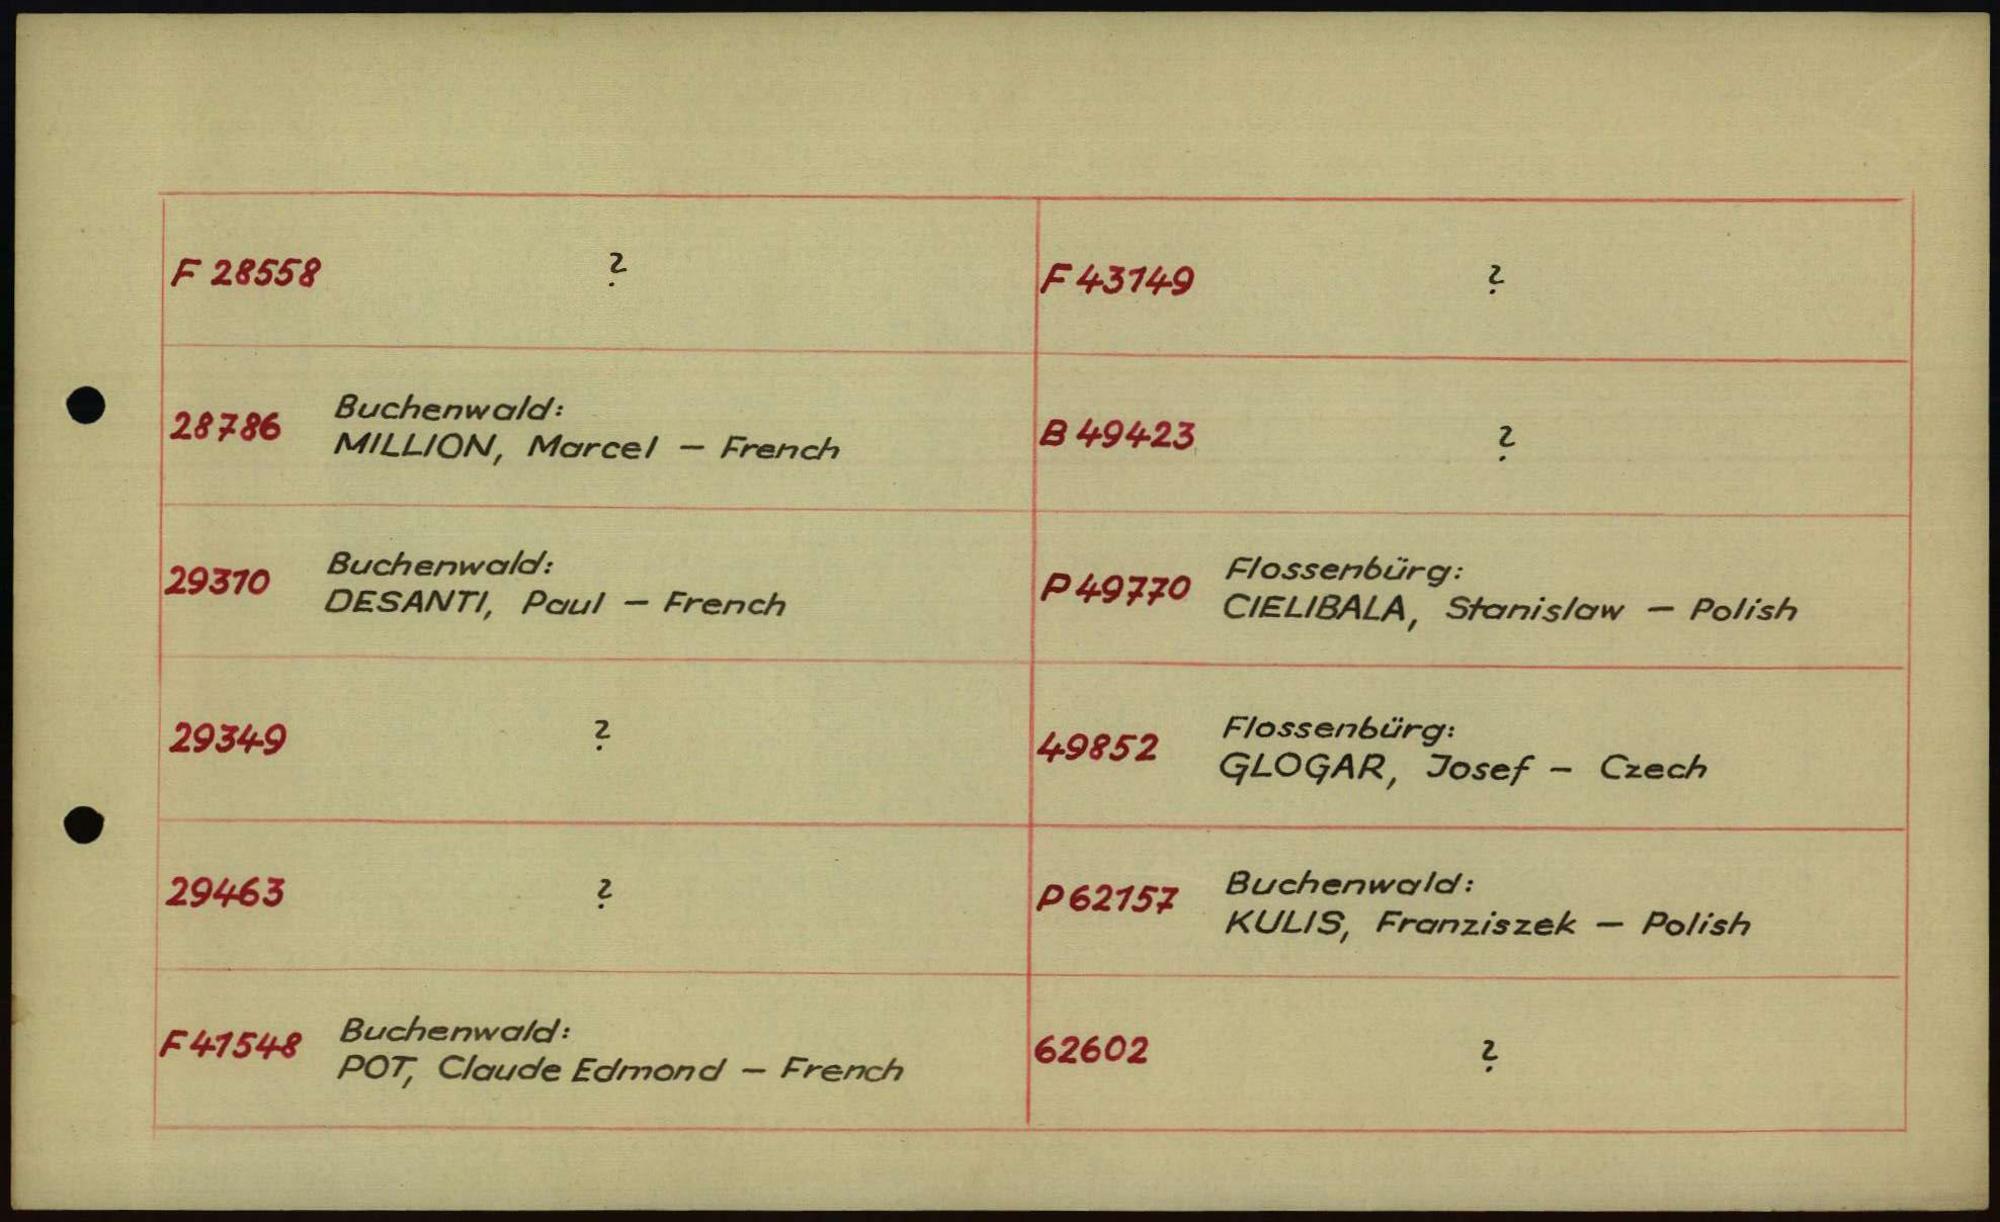 F 28558 ?
28786 Buchenwald:
MILLION, Marcel – French
29310 Buchenwald:
DESANTI, Paul – French
29349 ?
29463 ?
F 41548 Buchenwald:
POT, Claude Edmond – French
F 43149 ?
B 49423 ?
P 49770 Flossenbürg:
CIELIBALA, Stanislaw – Polish
49852 Flossenbürg:
GLOGAR, Josef – Czech
P 62157 Buchenwald:
KULIS, Franziszek – Polish
62602 ?